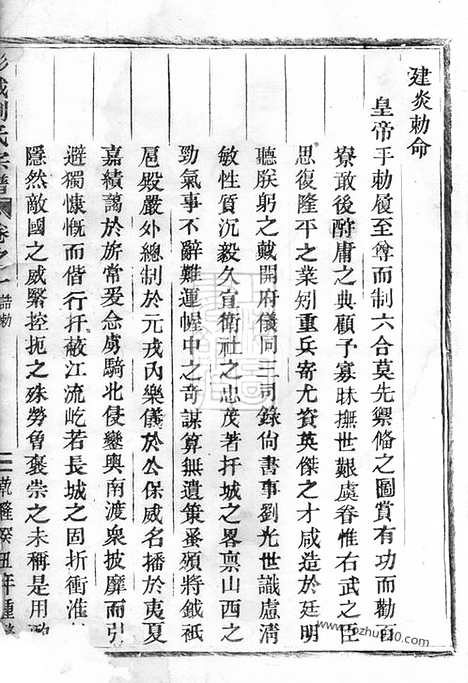 建炎勅命
皇帝手勅履至尊而制六合莫先禦脩之圖賞有功而勸百
寮敢後酧庸之典顧予寡昧撫世艱虞眷惟右武之臣
思復隆平之業矧重兵寄尤資英傑之才咸造於廷明
聽朕躬之戴開府儀同三司錄尙書事劉光世識慮淸
敏性質沉毅久宣衛社之忠茂著扞城之畧禀山西之
勁氣事不辭難運幄中之奇謀算無遺策蚤頒將鉞祇
扈殿嚴外總制於元戎內樂儀於公保威名播於夷夏
嘉績藹於旂常爰念虜騎北侵鑾輿南渡衆披靡而引
避獨慷慨而偕行扞蔽江流屹若長城之固折衝淮
隱然敵國之威緊控扼之殊勞魯褒崇之未稱是用
城劉氏宗譜 卷之一 誥勅 乾隆癸丑年重
www.fozhu920.com